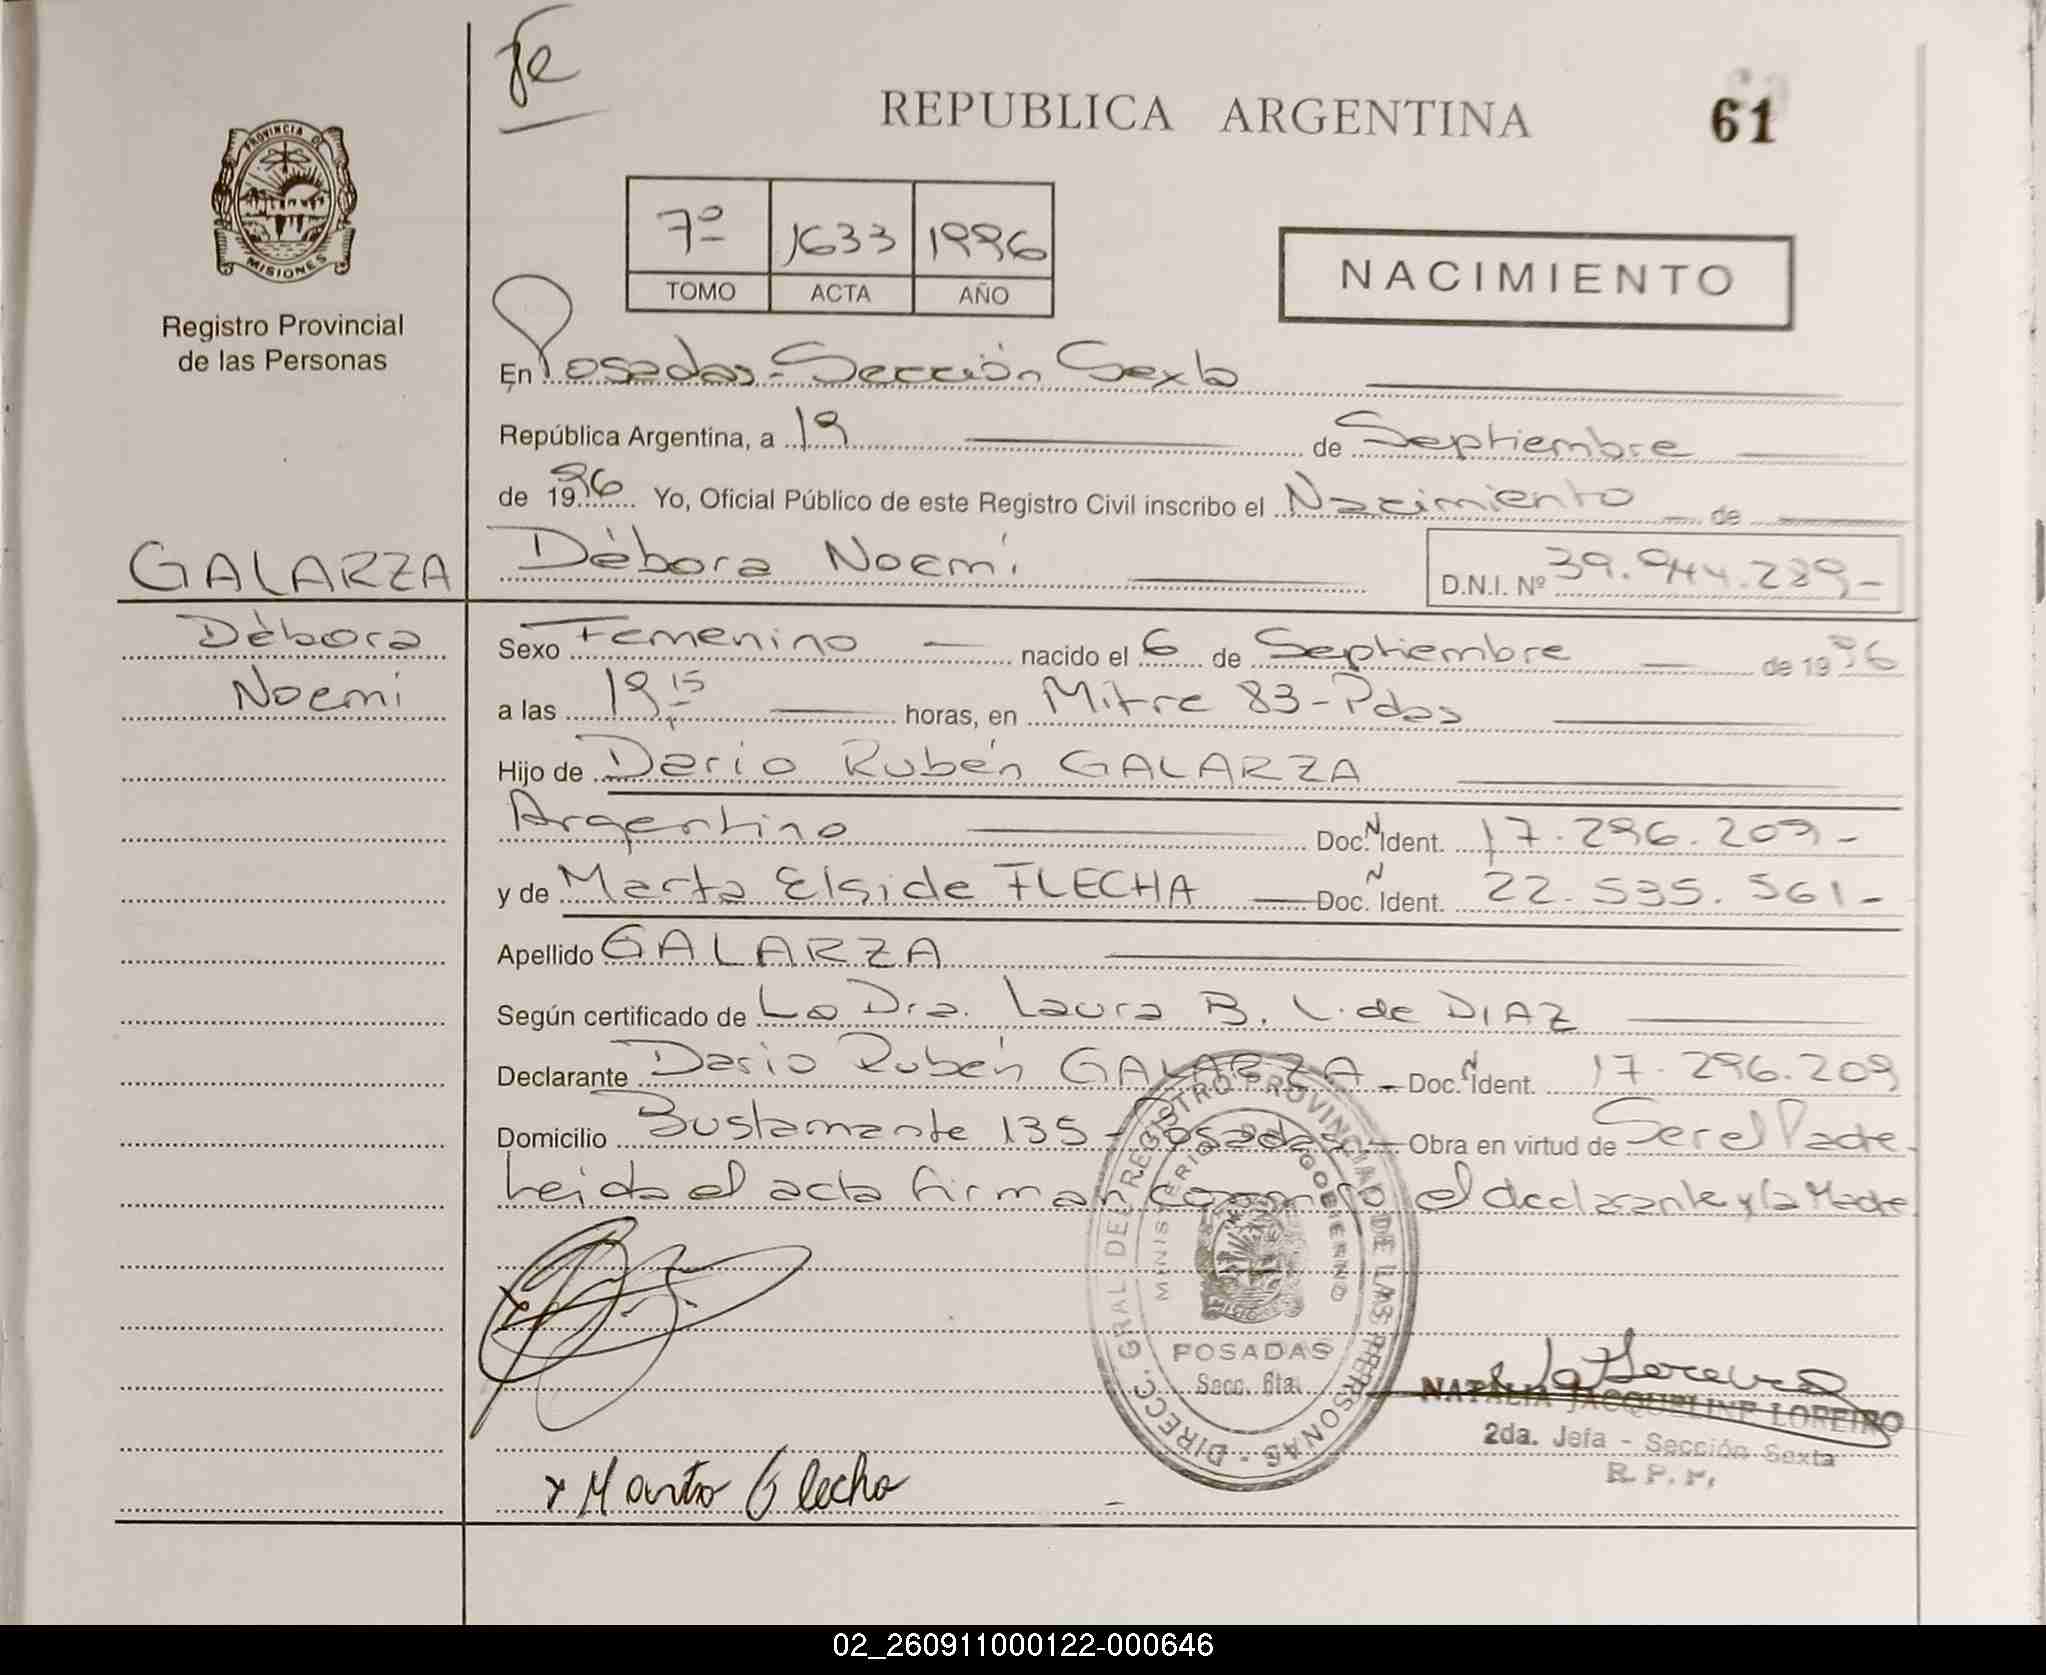 fe
REPUBLICA ARGENTINA
61
PROVINCIA DE
MISIONES
Registro Provincial
de las Personas
7º 1633 1996
TOMO ACTA AÑO
NACIMIENTO
En Posadas-Sección Sexta
República Argentina, a 19 de Septiembre
de 1996 Yo, Oficial Público de este Registro Civil inscribo el Nacimiento de
GALARZA Débora Noemi D.N.I. Nº 39.944.289-
Débora
Noemi
Sexo Femenino nacido el 6 de Septiembre de 1996
a las 19 15 horas, en Mitre 83-Pdas
Hijo de Dario Rubén GALARZA
Argentino Doc. N Ident. 17.296.209-
y de Marta Elside FLECHA Doc. N Ident. 22.535.561-
Apellido GALARZA
Según certificado de La Dra. Laura B. L. de DIAZ
Declarante Dario Rubén GALARZA - Doc. N Ident. 17.296.209
Domicilio Bustamante 135 - Posadas - Obra en virtud de Ser el Padre.
Leida el acta firman conmigo el declarante y la Madre
DIRECC. GRAL DEL REGISTRO PROVINCIAL DE LAS PERSONAS -
MINISTERIO DE GOBIERNO
POSADAS
Secc. 6ta.
NATALIA JACQUELINE LOREIRO
2da. Jefa - Sección Sexta
R. P. P.
x Marta Flecha
02_260911000122-000646